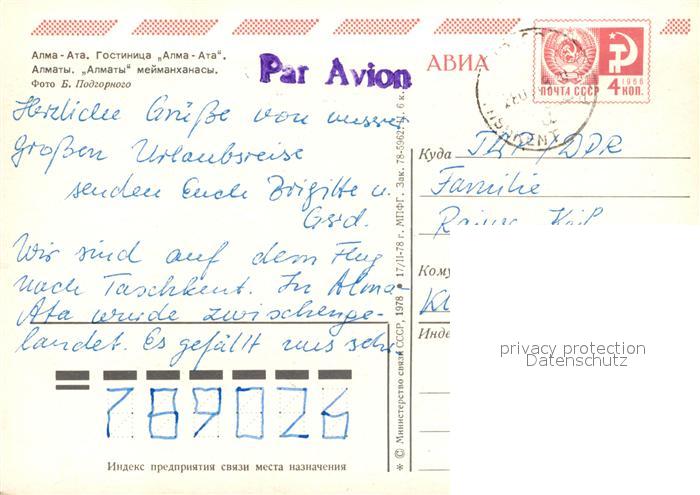 Алма-Ата. Гостиница „Алма-Ата“.
Алматы. „Алматы“ мейманханасы.
Фото Б. Подгорного
Par Avion
АВИА
ПОЧТА СССР
1966
4 КОП.
TASHKENT
Herzliche Grüße von unserer
großen Urlaubsreise
senden Euch Brigitte u.
Gerd.
Wir sind auf dem Flug
nach Taschkent. In Alma-
Ata wurde zwischenge-
landet. Es gefällt uns sehr.
789026
Индекс предприятия связи места назначения
* © Министерство связи СССР, 1978 ● 17/II-78 г. МПФГ. Зак. 78-5962. Ц. 6 к.
Куда ГДР/DDR
Familie
Кому
Инде
privacy protection
Datenschutz